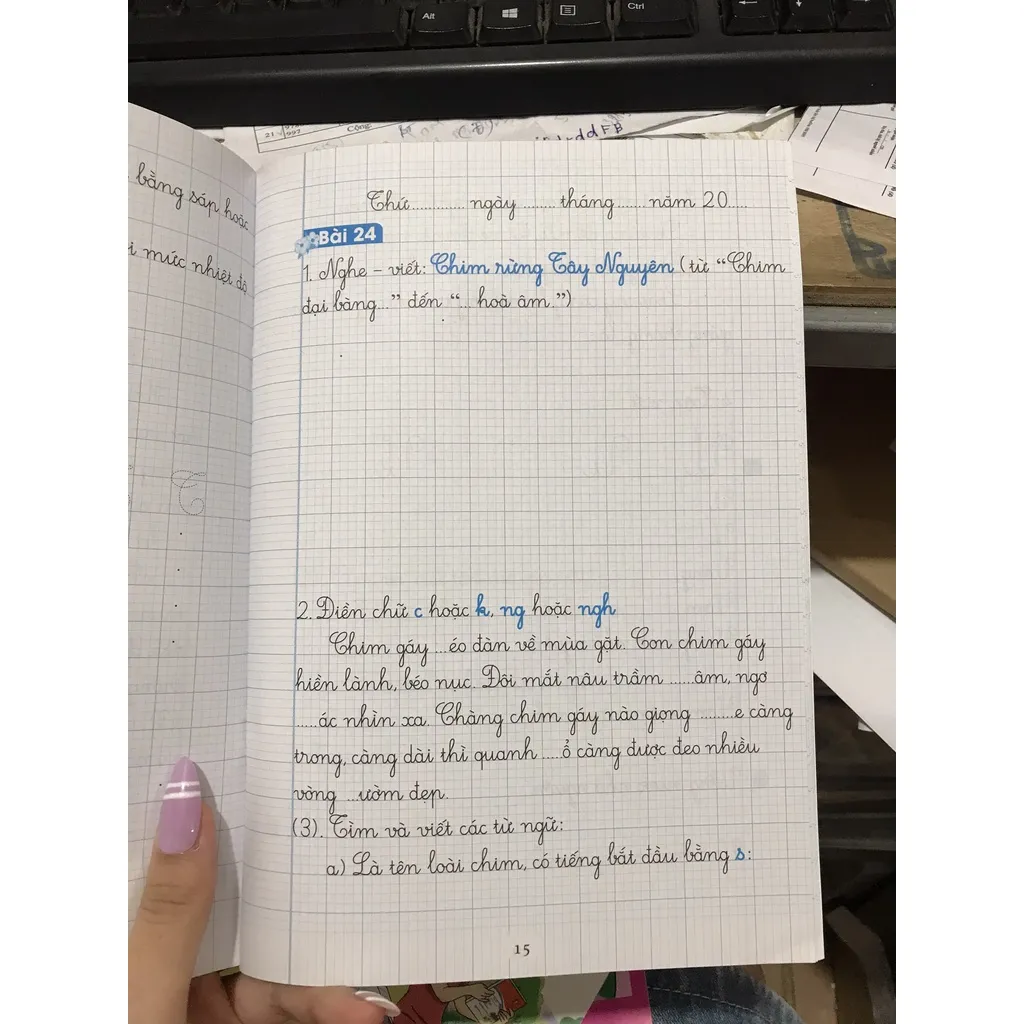 Alt
Ctrl
21
997
Cộng
ddFB
bằng sáp hoặc
mức nhiệt độ
Thứ............ ngày ....... tháng ....... năm 20.....
Bài 24
1. Nghe – viết: Chim rừng Tây Nguyên (từ “Chim
đại bàng...” đến “... hoà âm.”)
2. Điền chữ c hoặc k, ng hoặc ngh
Chim gáy ...éo đàn về mùa gặt. Con chim gáy
hiền lành, béo nục. Đôi mắt nâu trầm ......âm, ngơ
......ác nhìn xa. Chàng chim gáy nào giọng .........e càng
trong, càng dài thì quanh .....ổ càng được đeo nhiều
vòng ...ườm đẹp.
(3). Tìm và viết các từ ngữ:
a) Là tên loài chim, có tiếng bắt đầu bằng s:
15